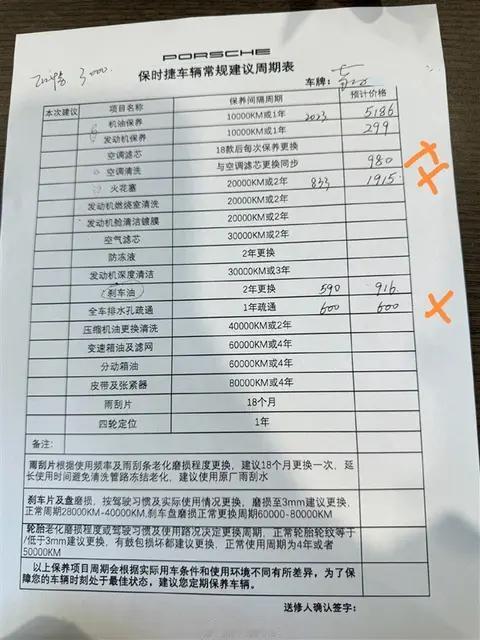 PORSCHE
保时捷车辆常规建议周期表
3000
车牌：
本次建议 项目名称 保养间隔周期 预计价格
机油保养 10000KM或1年 2023 5186
发动机保养 10000KM或1年 299
空调滤芯 18款后每次保养更换
空调清洗 与空调滤芯更换同步 980
火花塞 20000KM或2年 833 1915
发动机燃烧室清洗 20000KM或2年
发动机舱清洁镀膜 20000KM或2年
空气滤芯 30000KM或2年
防冻液 2年更换
发动机深度清洁 30000KM或3年
刹车油 2年更换 590 916
全车排水孔疏通 1年疏通 600 600
压缩机油更换清洗 40000KM或2年
变速箱油及滤网 60000KM或4年
分动箱油 60000KM或4年
皮带及张紧器 80000KM或4年
雨刮片 18个月
四轮定位 1年
备注：
雨刮片根据使用频率及雨刮条老化磨损程度更换，建议18个月更换一次，延
长使用时间避免清洗管路冻结老化，建议使用原厂雨刮水
刹车片及盘磨损，按驾驶习惯及实际使用情况更换，磨损至3mm建议更换，
正常周期28000KM-40000KM.刹车盘磨损正常更换周期60000-80000KM
轮胎老化磨损程度或驾驶习惯及使用路况决定更换周期，正常轮胎轮纹等于
/低于3mm建议更换，有鼓包损坏都建议更换，正常使用周期为4年或者
50000KM
以上保养项目周期会根据实际用车条件和使用环境不同有所差异，为了保
障您的车辆时刻处于最佳状态，建议您定期保养车辆。
送修人确认签字：